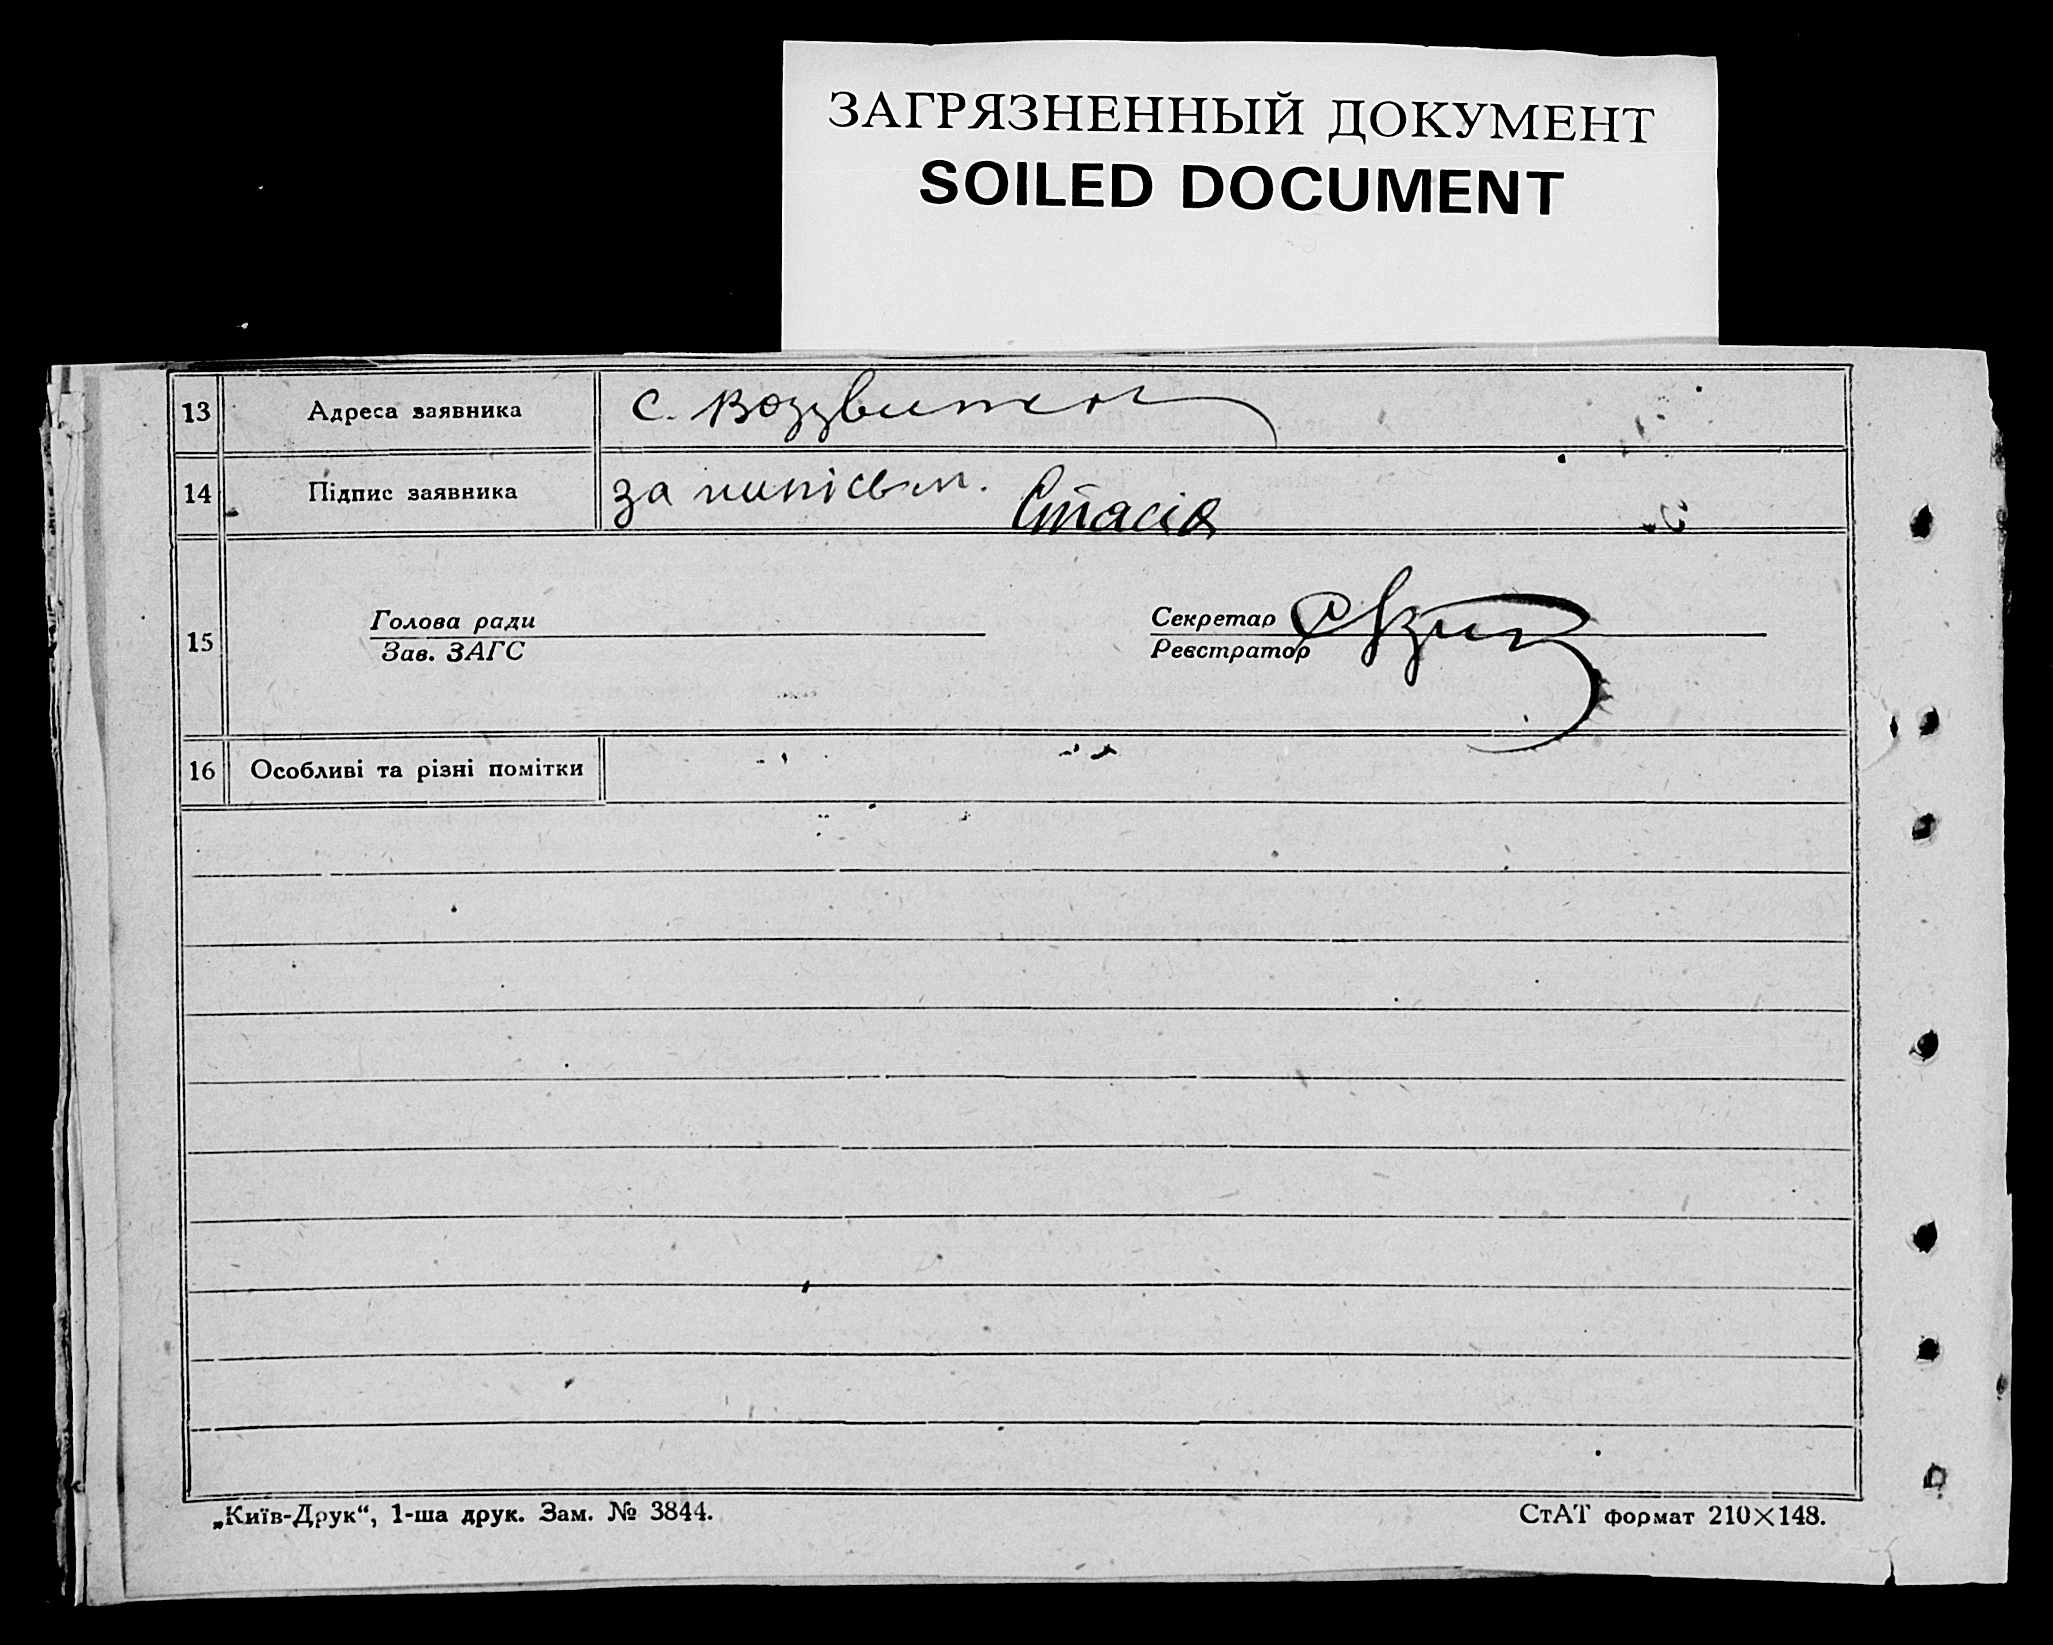 ЗАГРЯЗНЕННЫЙ ДОКУМЕНТ
SOILED DOCUMENT
13 Адреса заявника с. Воздвижен
14 Підпис заявника за Стасів
15 Голова ради Секретар
Зав. ЗАГС Реєстратор
16 Особливі та різні помітки
„Київ-Друк“, 1-ша друк. Зам. № 3844. СтАТ формат 210×148.